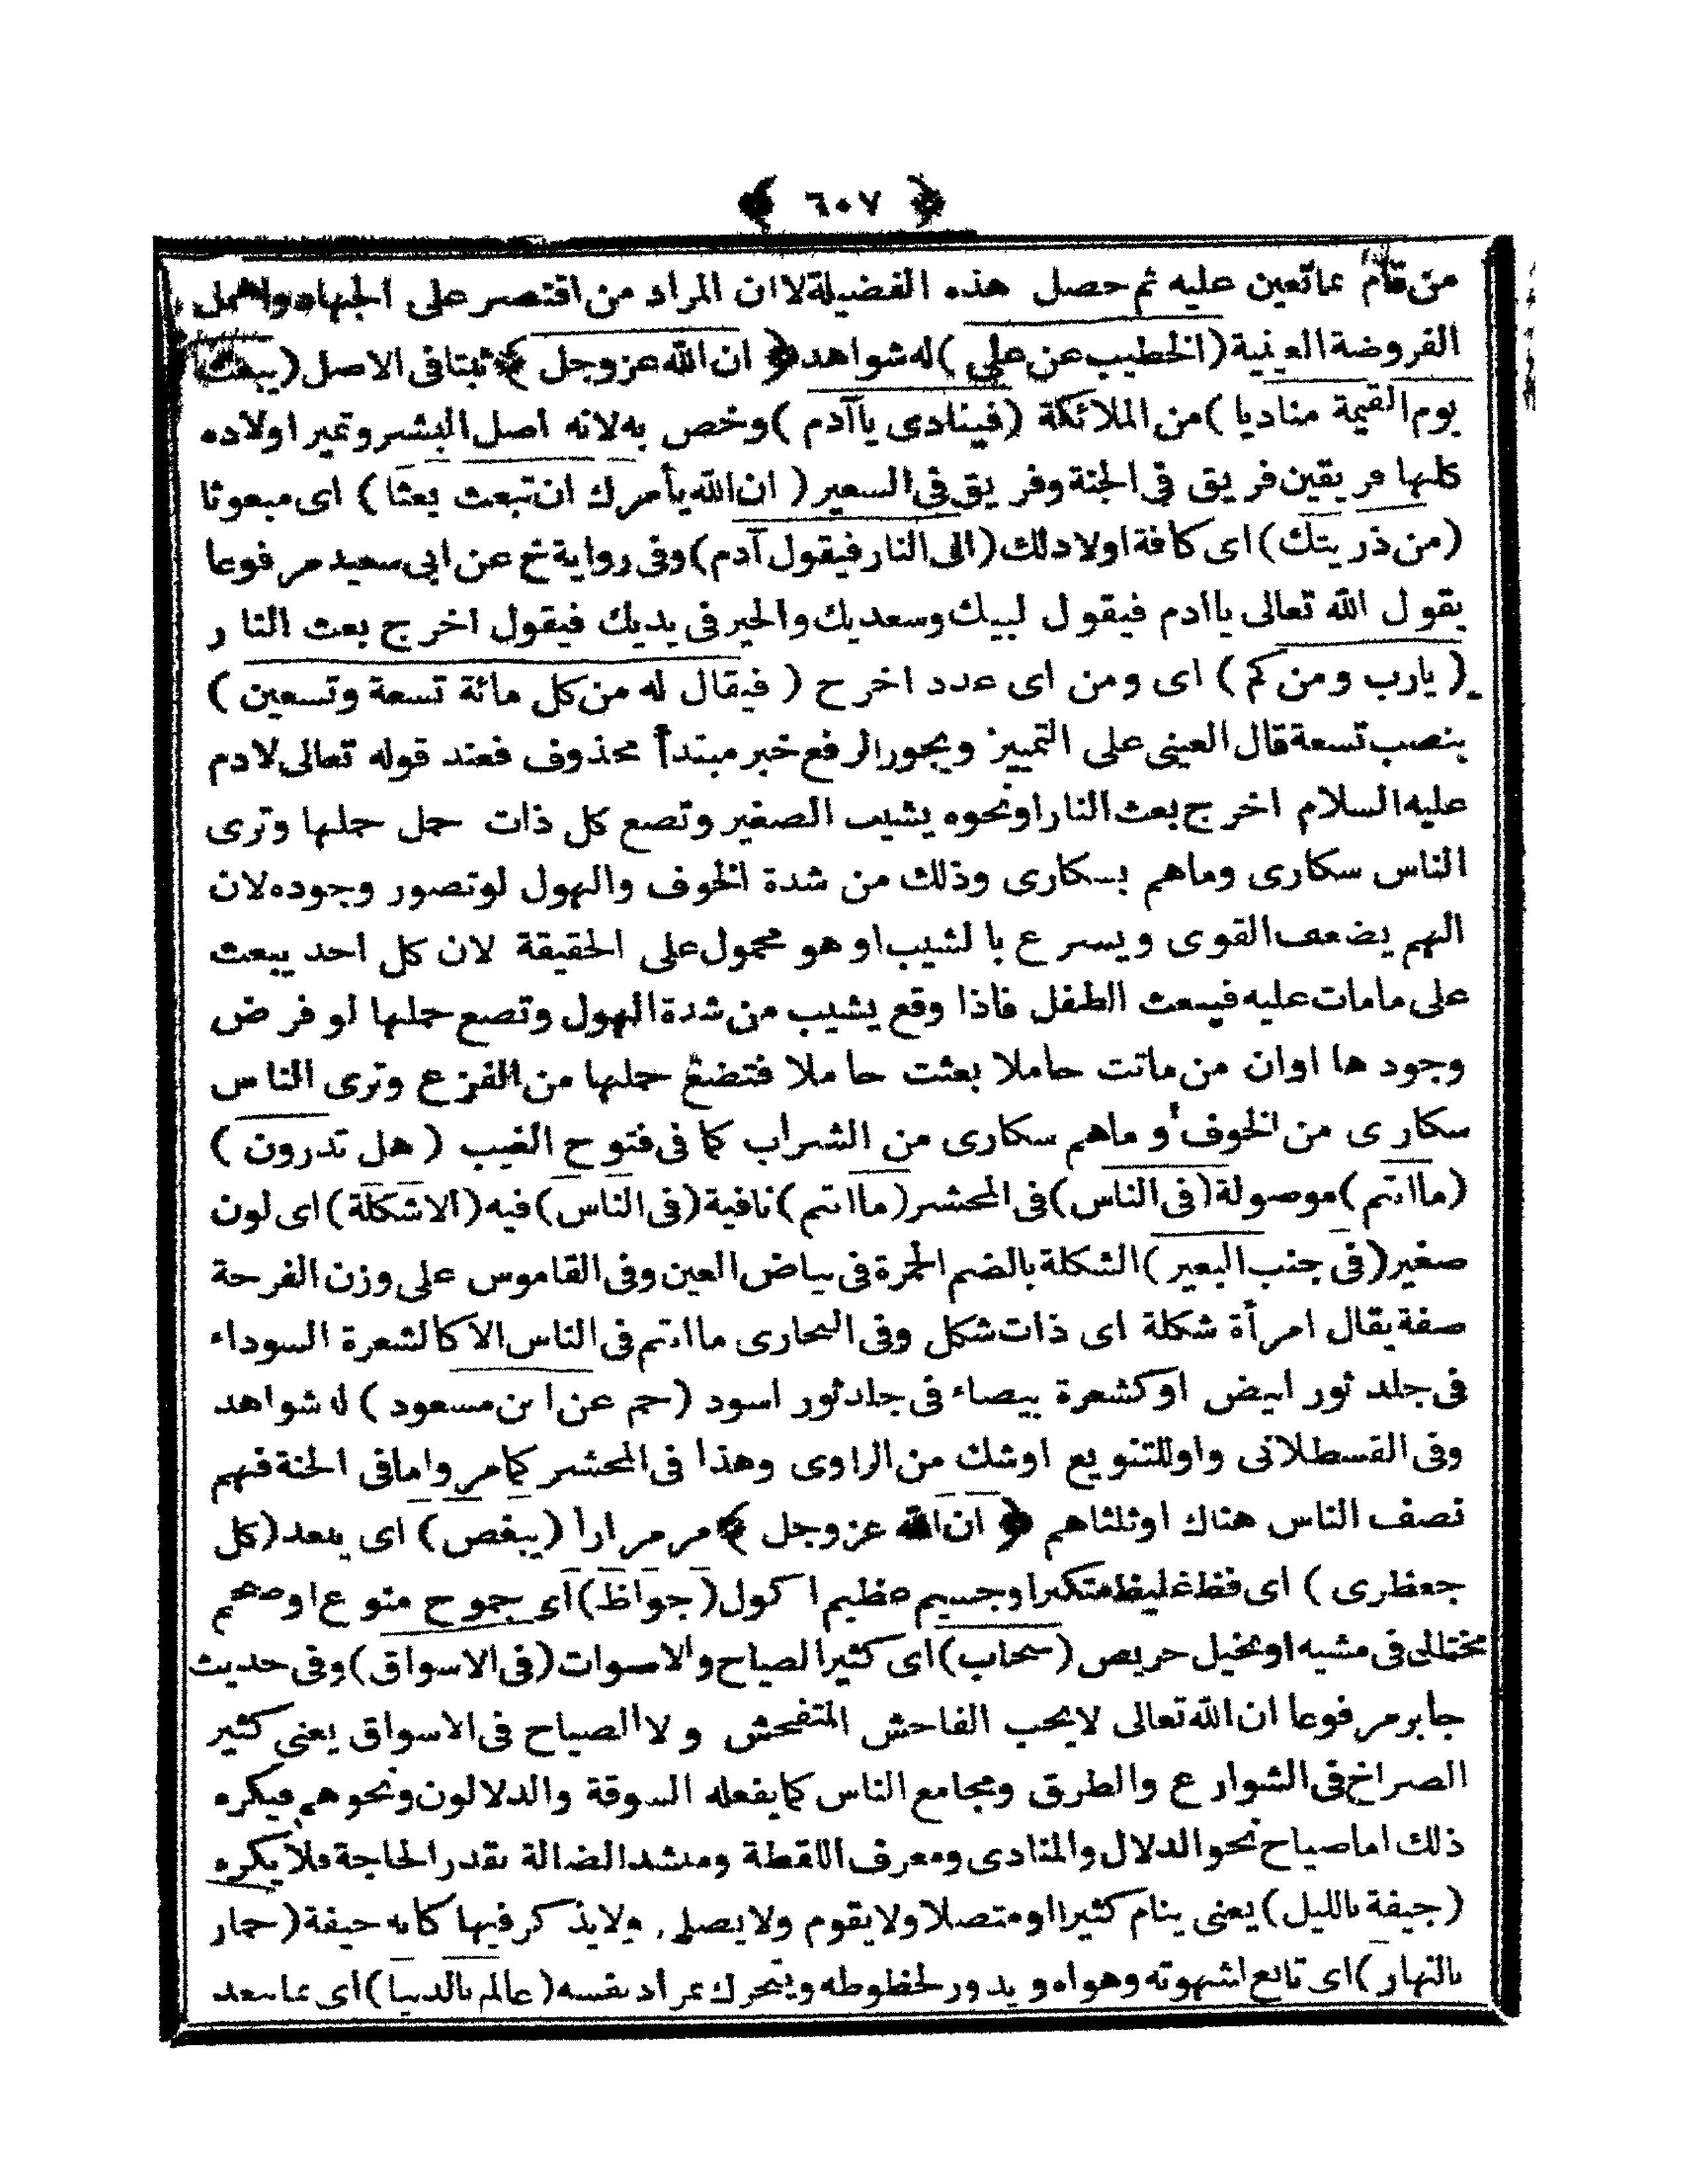 ﴿ ٦٠٧ ﴾
من قام عما تعين عليه ثم حصل هذه الفضيلة لا ان المراد من اقتصر على الجهاد واهمل
الفروضة العينية (الخطيب عن علي) له شواهد ﴿ ان الله عز وجل ﴾ ثبتا فى الاصل (يبعث
يوم القيمة مناديا) من الملائكة (فينادى يا آدم) وخص به لانه اصل البشر وتميز اولاده
كلها فريقين فريق فى الجنة وفريق فى السعير (ان الله يأمرك ان تبعث بعثا) اى مبعوثا
(من ذريتك) اى كافة اولادلك (الى النار فيقول آدم) وفى رواية خ عن ابى سعيد مرفوعا
يقول الله تعالى ياادم فيقول لبيك وسعديك والخير فى يديك فيقول اخرج بعث النار
(يارب ومن كم) اى ومن اى عدد اخرج (فيقال له من كل مائة تسعة وتسعين)
بنصب تسعة قال العينى على التمييز ويجوز الرفع خبر مبتدأ محذوف فعند قوله تعالى لادم
عليه السلام اخرج بعث النار او نحوه يشيب الصغير وتضع كل ذات حمل حملها وترى
الناس سكارى وماهم بسكارى وذلك من شدة الخوف والهول لو تصور وجوده لان
الهم يضعف القوى ويسرع بالشيب او هو محمول على الحقيقة لان كل احد يبعث
على مامات عليه فيبعث الطفل فاذا وقع يشيب من شدة الهول وتضع حملها لو فرض
وجودها اوان من ماتت حاملا بعثت حاملا فتضع حملها من الفزع وترى الناس
سكارى من الخوف و ماهم سكارى من الشراب كما فى فتوح الغيب (هل تدرون)
(ماانتم) موصولة (فى الناس) فى المحشر (ماانتم) نافية (فى الناس) فيه (الاشكلة) اى لون
صغير (فى جنب البعير) الشكلة بالضم الحمرة فى بياض العين وفى القاموس على وزن الفرحة
صفة يقال امرأة شكلة اى ذات شكل وفى البخارى ماانتم فى الناس الا كالشعرة السوداء
فى جلد ثور ابيض او كشعرة بيضاء فى جلد ثور اسود (حم عن ابن مسعود) له شواهد
وفى القسطلانى واوللتنويع اوشك من الراوى وهذا فى المحشر كمامر واما فى الجنة فهم
نصف الناس هناك اوثلثاهم ﴿ ان الله عز وجل ﴾ مر مرارا (يبغض) اى يبعد (كل
جعظرى) اى فظ غليظ متكبر او جسيم عظيم اكول (جواظ) اى جموح منوع او ضخم
مختال فى مشيه او بخيل حريص (سخاب) اى كثير الصياح والاصوات (فى الاسواق) وفى حديث
جابر مرفوعا ان الله تعالى لا يحب الفاحش المتفحش ولا الصياح فى الاسواق يعنى كثير
الصراخ فى الشوارع والطرق ومجامع الناس كما يفعله السوقة والدلالون ونحوهم فيكره
ذلك اما صياح نحو الدلال والمنادى ومعرف اللقطة ومنشد الضالة بقدر الحاجة فلا يكره
(جيفة بالليل) يعنى ينام كثيرا او متصلا ولا يقوم ولا يصلى ولا يذكر فيها كانه جيفة (حمار
بالنهار) اى تابع لشهوته وهواه ويدور لحظوظه ويتحرك بمراد نفسه (عالم بالدنيا) اى بما يبعد